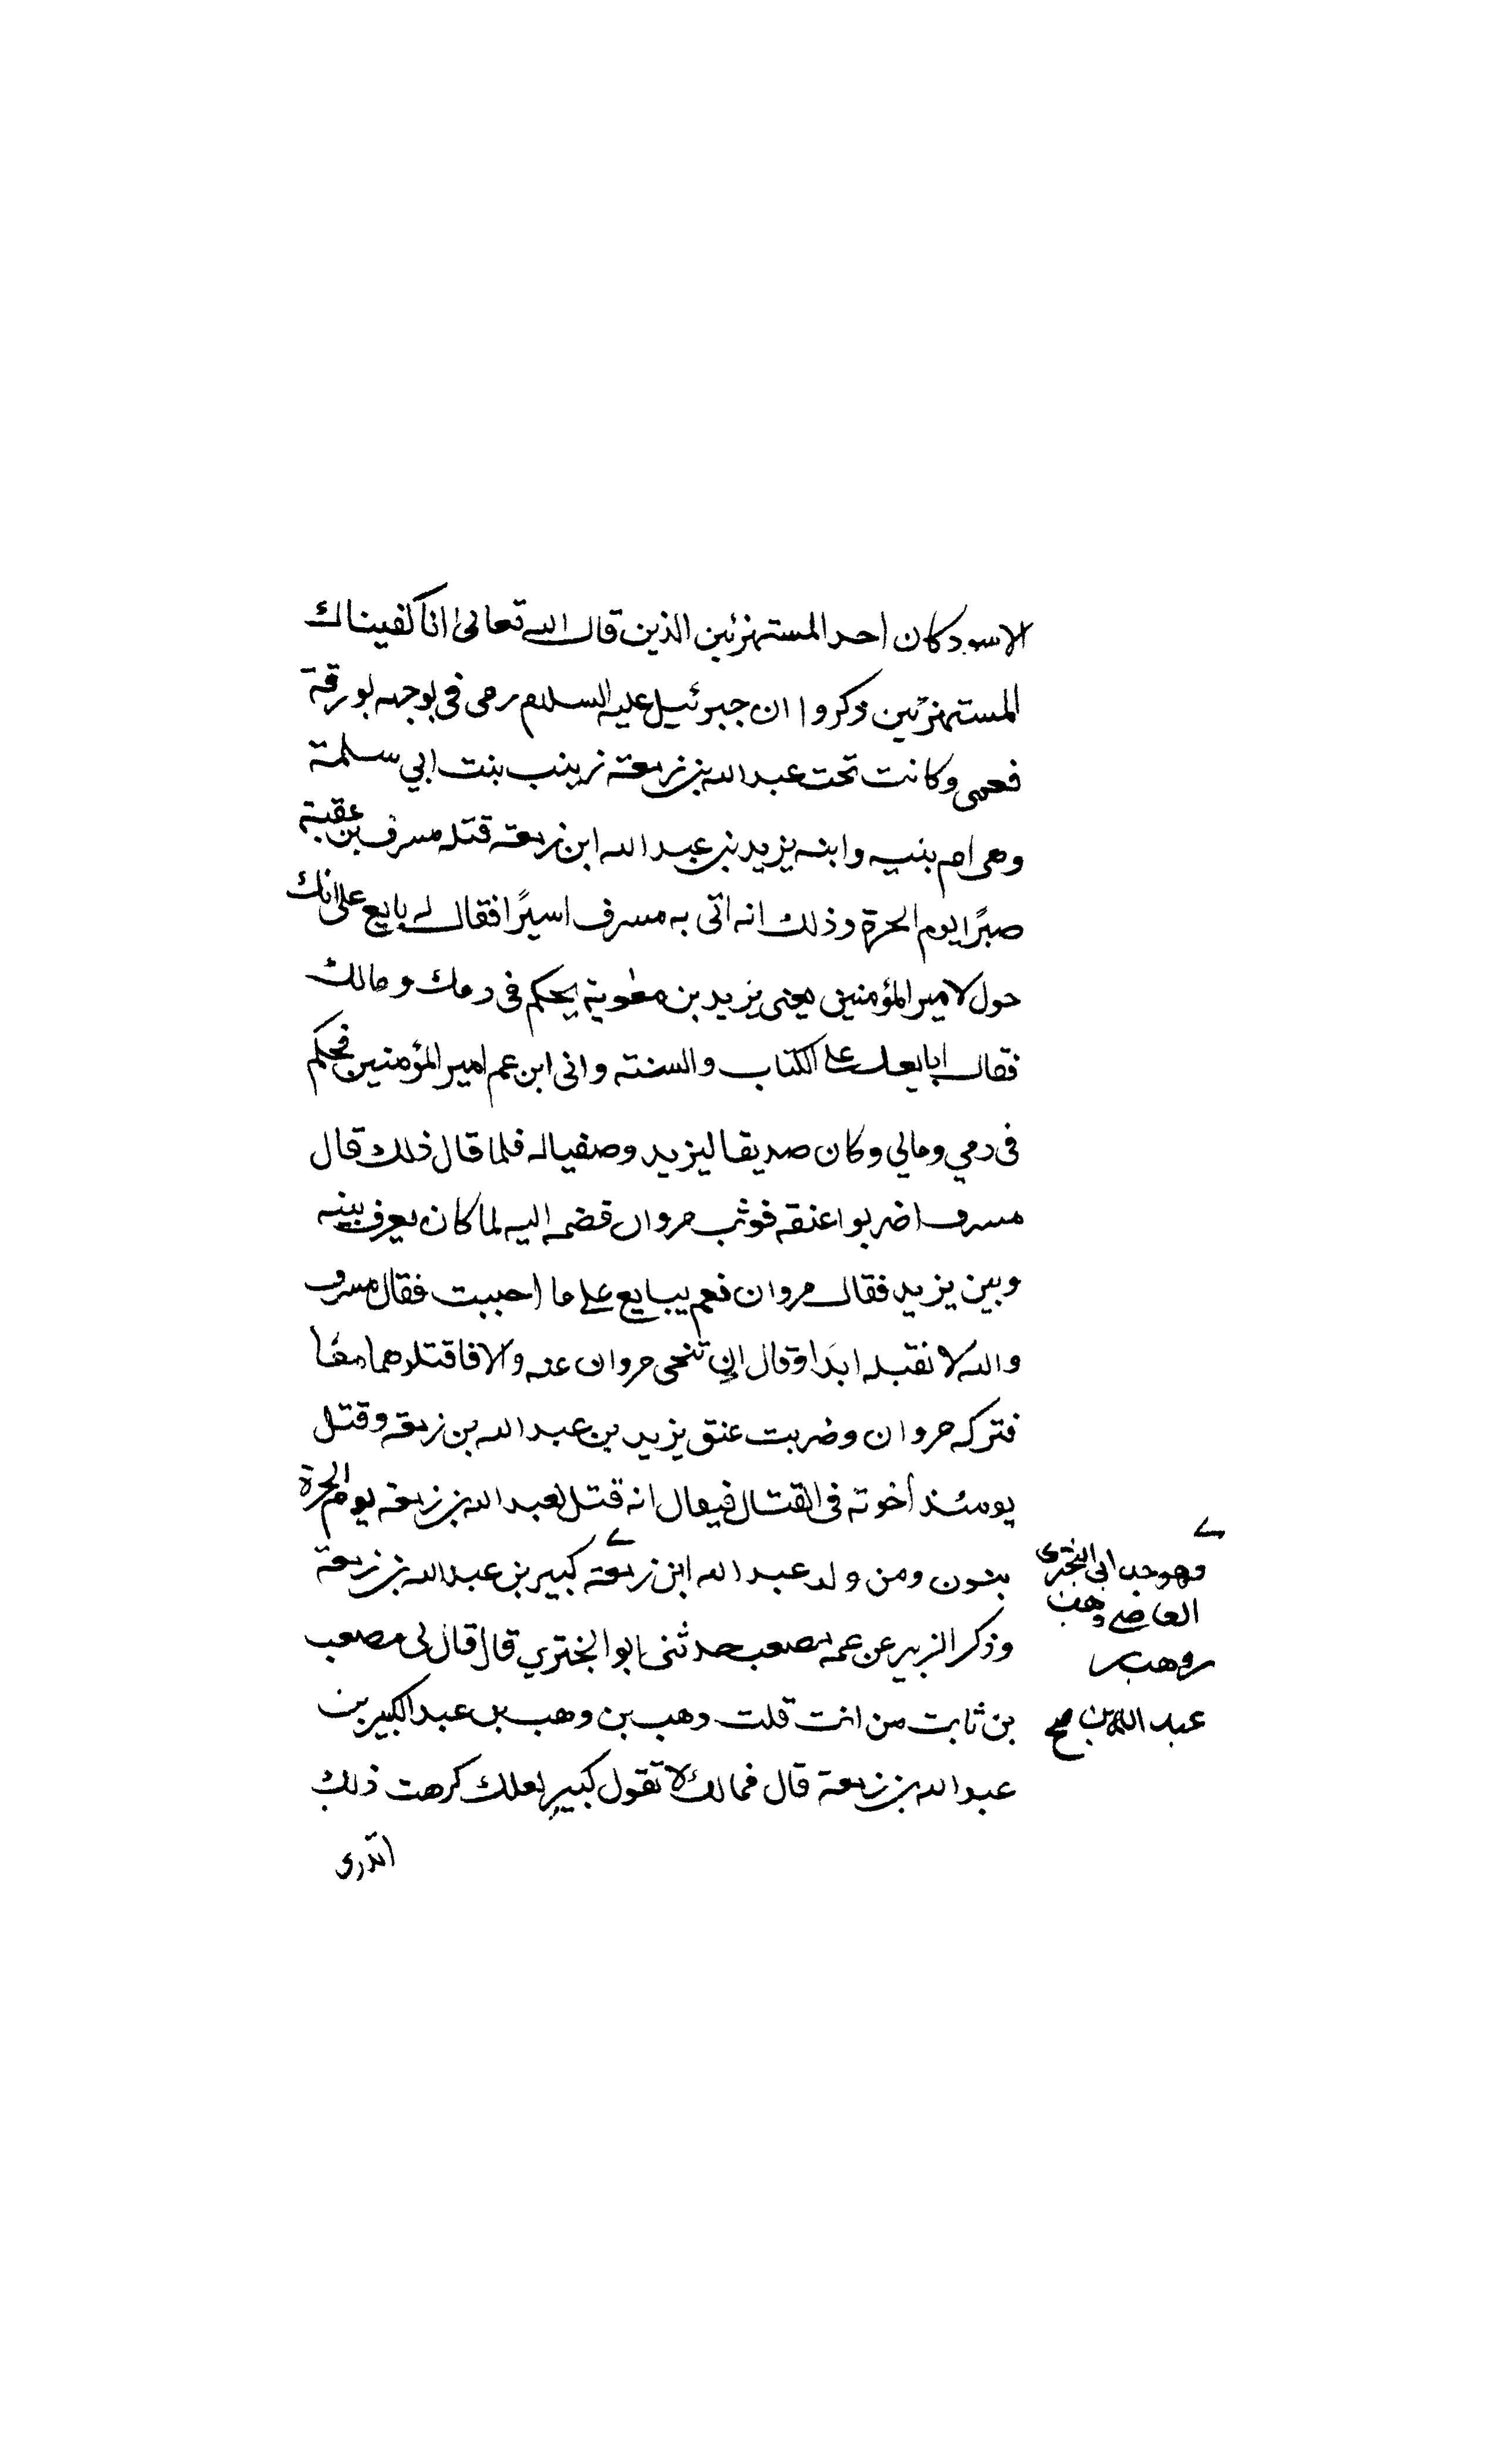 الاسود كان احد المستهزئين الذين قال الله تعالى انا كفيناك
المستهزئين ذكروا ان جبرئيل عليه السلام رمى في بوجهه بورقة
فعمى وكانت تحت عبد الله بن زمعة زينب بنت ابي سلمة
وهى ام بنيه وابنه يزيد بن عبد الله ابن زمعة قتله مسرف بن عقبة
صبرًا يوم الحرة وذلك انه اتى به مسرف اسيرًا فقال له بايع على انك
خول لامير المؤمنين يعنى يزيد بن معوية يحكم فى دمك ومالك
فقال ابايعك على الكتاب والسنة وانى ابن عم امير المؤمنين فحكم
فى دمي ومالي وكان صديقا ليزيد وصفيا له فلما قال ذلك قال
مسرف اضربوا عنقه فوثب مروان فضمه اليه لما كان يعرف بينه
وبين يزيد فقال مروان نعم يبايع على ما احببت فقال مسرف
والله لا نقبله ابدًا وقال ان تنحى مروان عنه والا فاقتلوهما معًا
فتركه مروان وضربت عنق يزيد بن عبد الله بن زمعة وقتل
يومئذ أخوته فى القتال فيقال انه قتل لعبد الله بن زمعة يوم الحرة
بنون ومن ولد عبد الله ابن زمعة كبير بن عبد الله بن زمعة
وذكر الزبير عن عمه مصعب حدثنى ابو البختري قال قال لى مصعب
بن ثابت من انت قلت وهب بن وهب بن عبد الكبير بن
عبد الله بن زمعة قال فمالك لا تقول كبير لعلك كرهت ذلك
اتدرى
وهو جد ابى البخترى
القاضى وهب
بن وهب بن
عبد الله بن صح